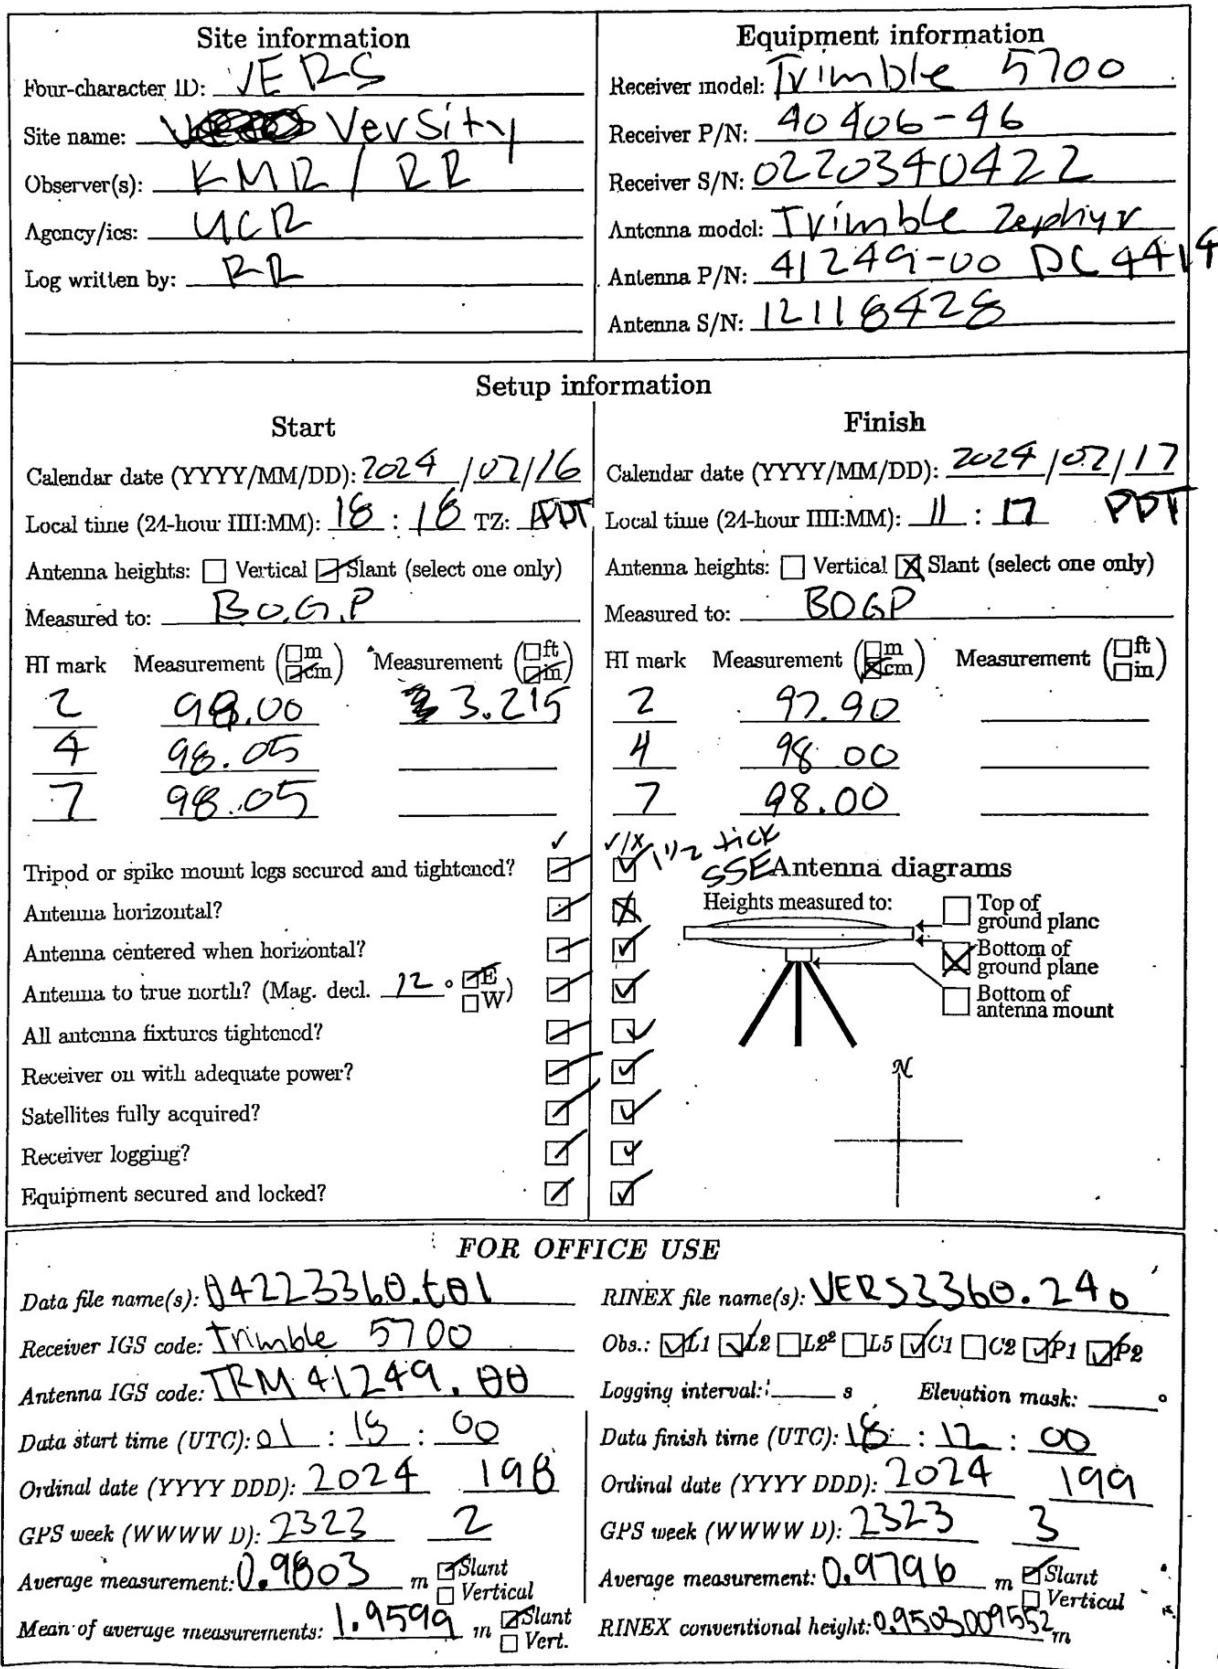 Site information
Four-character ID: VERS
Site name: Versity
Observer(s): KMR / RR
Agency/ies: UCR
Log written by: RR
Equipment information
Receiver model: Trimble 5700
Receiver P/N: 40406-46
Receiver S/N: 0220340422
Antenna model: Trimble Zephyr
Antenna P/N: 41249-00 DC 4414
Antenna S/N: 12118428
Setup information
Start
Calendar date (YYYY/MM/DD): 2024 /07/16
Local time (24-hour HH:MM): 18 : 18 TZ: PDT
Antenna heights: Vertical Slant (select one only)
Measured to: B.O.G.P
HI mark Measurement (m cm) Measurement (ft in)
2 98.00 3.215
4 98.05
7 98.05
Finish
Calendar date (YYYY/MM/DD): 2024 /07/17
Local time (24-hour HH:MM): 11 : 17 PDT
Antenna heights: Vertical Slant (select one only)
Measured to: BOGP
HI mark Measurement (m cm) Measurement (ft in)
2 97.90
4 98.00
7 98.00
✓ ✓/X
Tripod or spike mount legs secured and tightened?
Antenna horizontal?
Antenna centered when horizontal?
Antenna to true north? (Mag. decl. 12 ° E W)
All antenna fixtures tightened?
Receiver on with adequate power?
Satellites fully acquired?
Receiver logging?
Equipment secured and locked?
1 1/2 tick
SSE
Antenna diagrams
Heights measured to:
Top of
ground plane
Bottom of
ground plane
Bottom of
antenna mount
N
FOR OFFICE USE
Data file name(s): 04223360.t01
Receiver IGS code: Trimble 5700
Antenna IGS code: TRM 41249.00
Data start time (UTC): 01 : 18 : 00
Ordinal date (YYYY DDD): 2024 198
GPS week (WWWW D): 2323 2
Average measurement: 0.9803 m Slant
Vertical
Mean of average measurements: 1.9599 m Slant
Vert.
RINEX file name(s): VERS3360.24o
Obs.: L1 L2 L2² L5 C1 C2 P1 P2
Logging interval: s Elevation mask: °
Data finish time (UTC): 18 : 12 : 00
Ordinal date (YYYY DDD): 2024 199
GPS week (WWWW D): 2323 3
Average measurement: 0.9796 m Slant
Vertical
RINEX conventional height: 0.9503009552 m